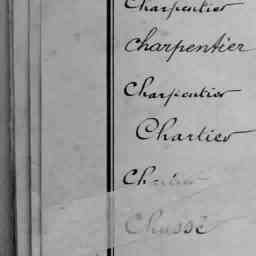 Charpentier
Charpentier
Charpentier
Chartier
Chassé